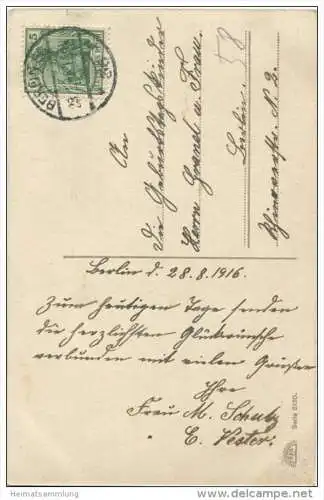 An
die Geburtstagskinder
Herrn Granel u. Frau.
Berlin.
58
Berlin d. 28.8.1916.
Zum heutigen Tage senden
die herzlichsten Glückwünsche
verbunden mit vielen Grüssen
Ihre
Frau M. Schulz
E. Vester.
Serie 5130.
BERLIN
5
www.heimatsammlung.de
Heimatsammlung